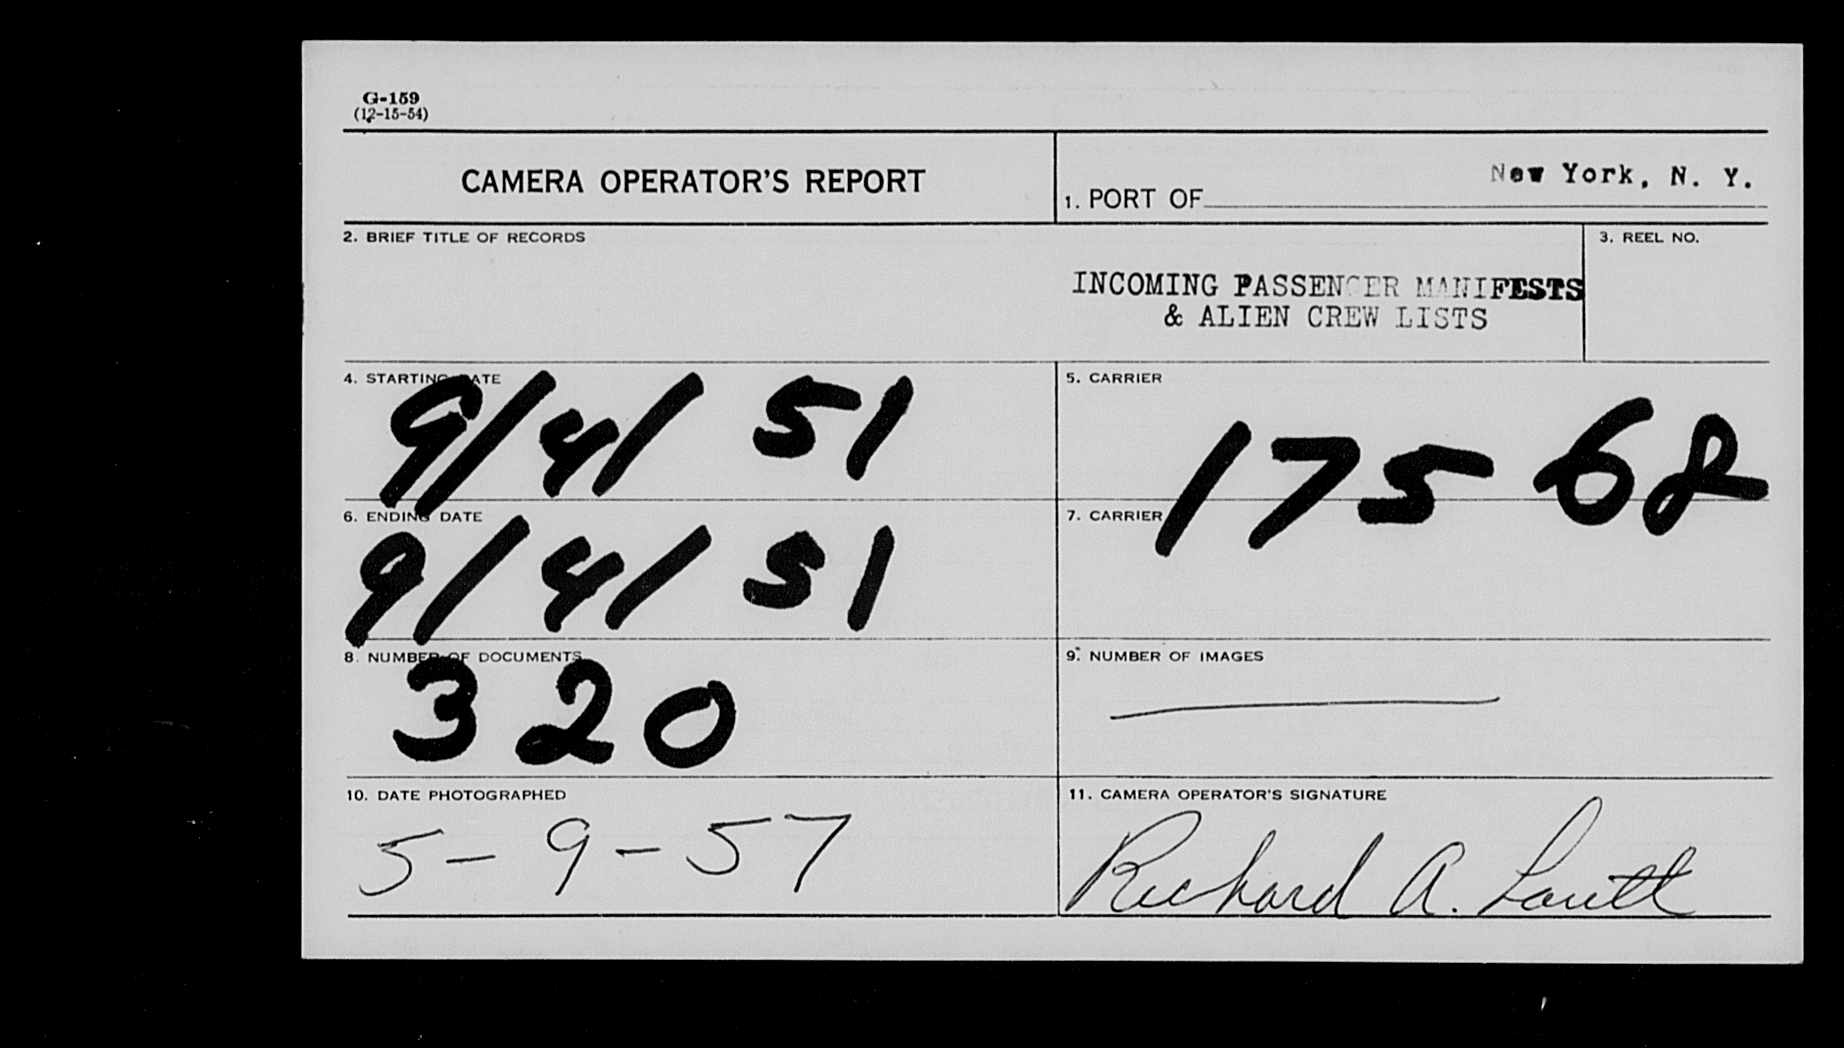 G-159
(12-15-54)
CAMERA OPERATOR'S REPORT
1. PORT OF New York, N. Y.
2. BRIEF TITLE OF RECORDS
INCOMING PASSENGER MANIFESTS
& ALIEN CREW LISTS
3. REEL NO.
4. STARTING DATE
9/4/51
5. CARRIER
17568
6. ENDING DATE
9/4/51
7. CARRIER
8. NUMBER OF DOCUMENTS
320
9. NUMBER OF IMAGES
10. DATE PHOTOGRAPHED
5-9-57
11. CAMERA OPERATOR'S SIGNATURE
Richard A.